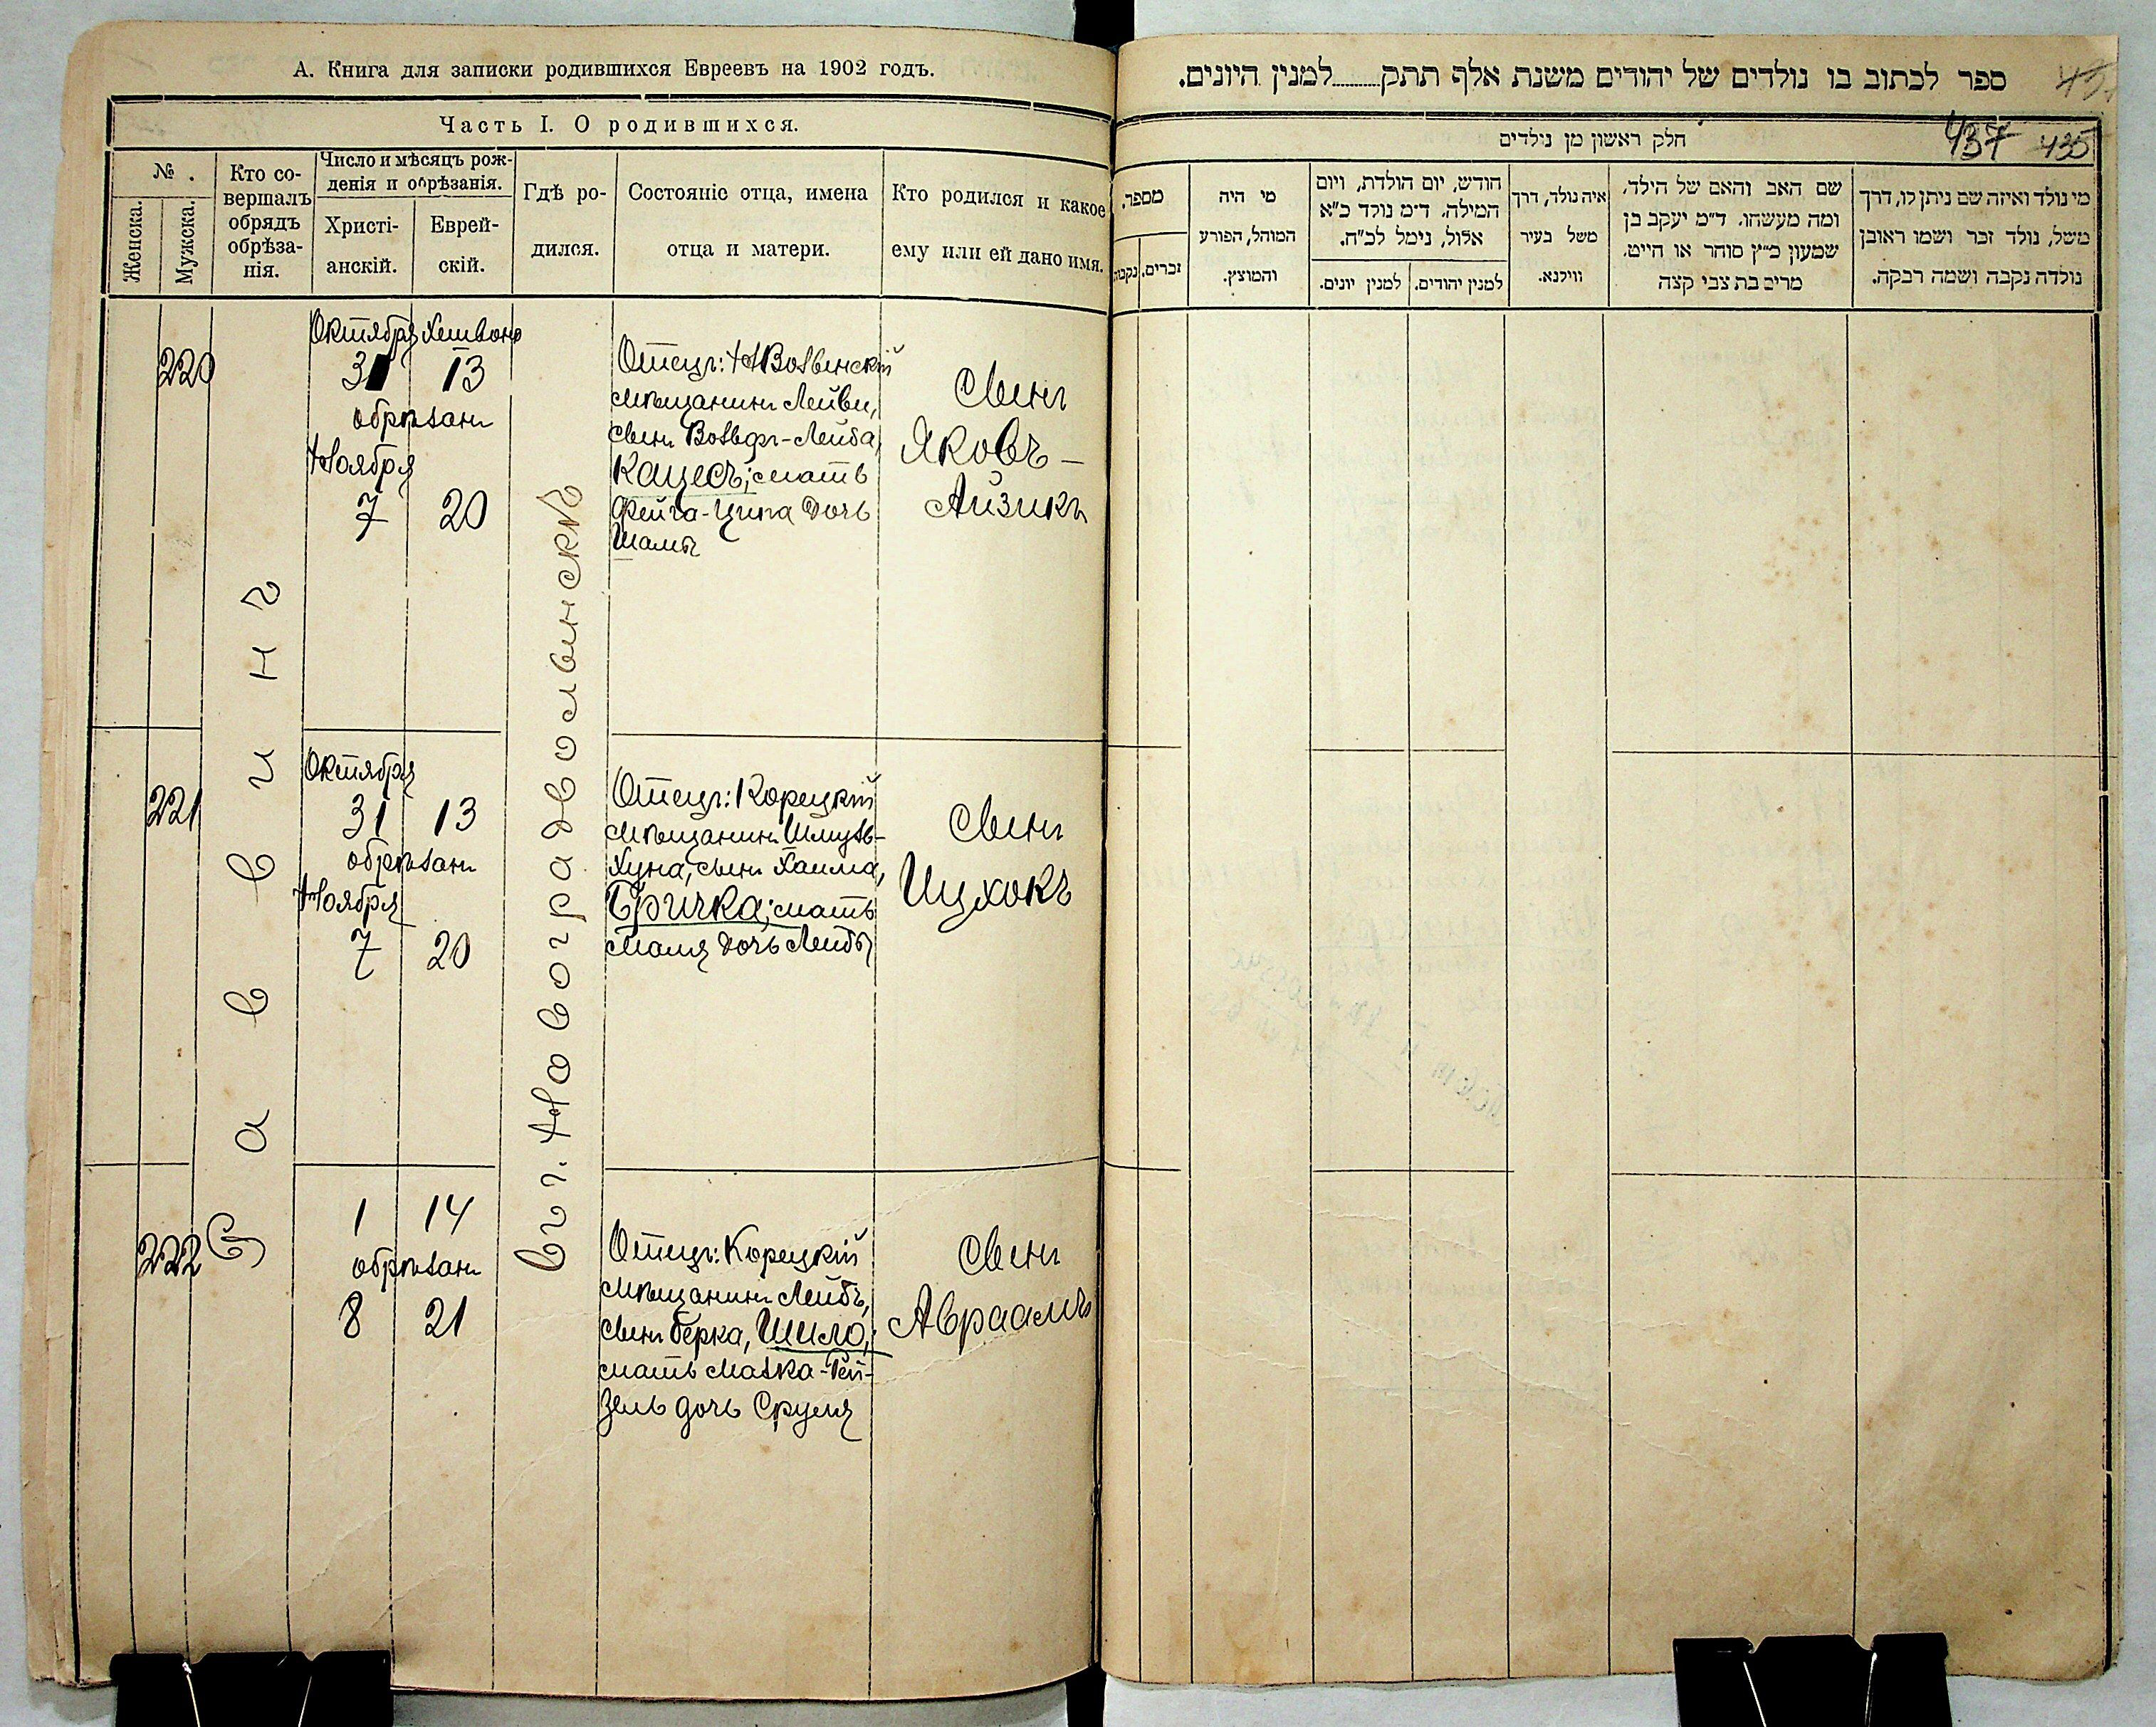 А. Книга для записки родившихся Евреевъ на 1902 годъ.
Часть I. О родившихся.
№
Женска.
Мужска.
Кто со-
вершалъ
обрядъ
обрѣза-
нія.
Число и мѣсяцъ рож-
денія и обрѣзанія.
Христі-
анскій.
Еврей-
скій.
Гдѣ ро-
дился.
Состояніе отца, имена
отца и матери.
Кто родился и какое
ему или ей дано имя.
Савинъ
въ г. Новоградволынскѣ
220
Октября Хешвонъ
31 13
обрѣзанъ
Ноября
7 20
Отецъ:
мѣщанинъ Лейви,
сынъ Вольфъ-Лейба,
Кацесъ; мать
Фейга-Ципа дочь
Шамы
Сынъ
Яковъ-
Айзикъ
221
Октября
31 13
обрѣзанъ
Ноября
7 20
Отецъ: Корецкій
мѣщанинъ Шмуль-
Хуна, сынъ Хаима,
Бричка; мать
Маля дочь Лейбы
Сынъ
Ицхокъ
222
1 14
обрѣзанъ
8 21
Отецъ: Корецкій
мѣщанинъ Лейбъ,
сынъ Берка, Шило;
мать Малка-Рей-
зель дочь Сруля
Сынъ
Авраамъ
ספר לכתוב בו נולדים של יהודים משנת אלף תתק........למנין היונים.
437 435
חלק ראשון מן נולדים
מי נולד ואיזה שם ניתן לו, דרך
משל, נולד זכר ושמו ראובן
נולדה נקבה ושמה רבקה.
שם האב והאם של הילד,
ומה מעשהו. ד״מ יעקב בן
שמעון כ״ץ סוחר או חייט,
מרים בת צבי קצה
איה נולד, דרך
משל בעיר
ווילנא.
חודש, יום הולדת, ויום
המילה. ד״מ נולד כ״א
אלול, נימל לכ״ח.
למנין יהודים.
למנין יונים.
מי היה
המוהל, הפורע
והמוצץ.
מספר.
זכרים.
נקבות